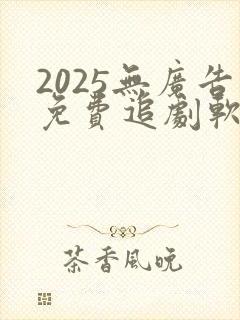 2025無廣告
免費追劇軟
茶香風晚